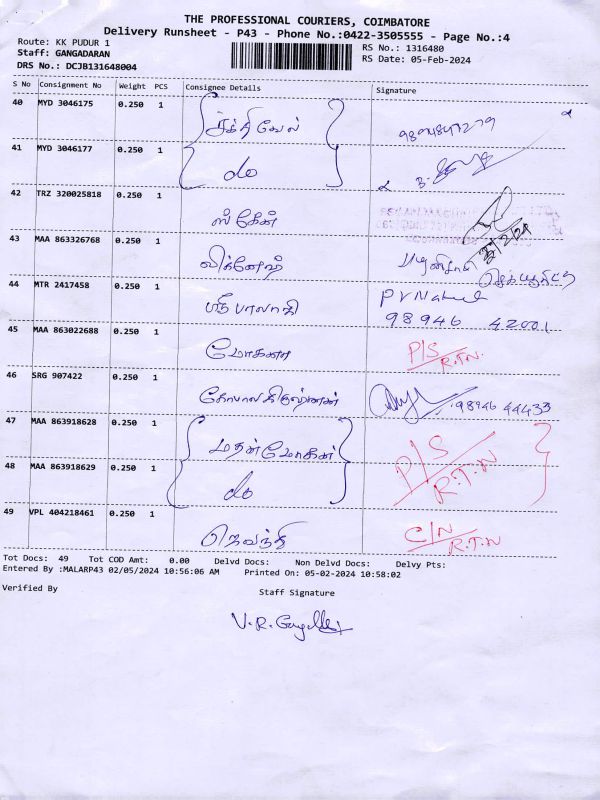 THE PROFESSIONAL COURIERS, COIMBATORE
Delivery Runsheet - P43 - Phone No.:0422-3505555 - Page No.:4
Route: KK PUDUR 1 RS No.: 1316480
Staff: GANGADARAN RS Date: 05-Feb-2024
DRS No.: DCJB131648004
S No Consignment No Weight PCS Consignee Details Signature
40 MYD 3046175 0.250 1 சக்திவேல்
41 MYD 3046177 0.250 1 do
42 TRZ 320025818 0.250 1 ஸ்கேன்
43 MAA 863326768 0.250 1 விக்னேஷ் பழனிசாமி
44 MTR 2417458 0.250 1 ஸ்ரீ பாலாஜி
98946 42001
45 MAA 863022688 0.250 1 மோகனா P/S R.T.N.
46 SRG 907422 0.250 1 கோபாலகிருஷ்ணன் 98946 44433
47 MAA 863918628 0.250 1 மதன்மோகன் P/S
48 MAA 863918629 0.250 1 do R.T.N
49 VPL 404218461 0.250 1 ரேவந்தி C/N R.T.N
Tot Docs: 49 Tot COD Amt: 0.00 Delvd Docs: Non Delvd Docs: Delvy Pts:
Entered By :MALARP43 02/05/2024 10:56:06 AM Printed On: 05-02-2024 10:58:02
Verified By Staff Signature